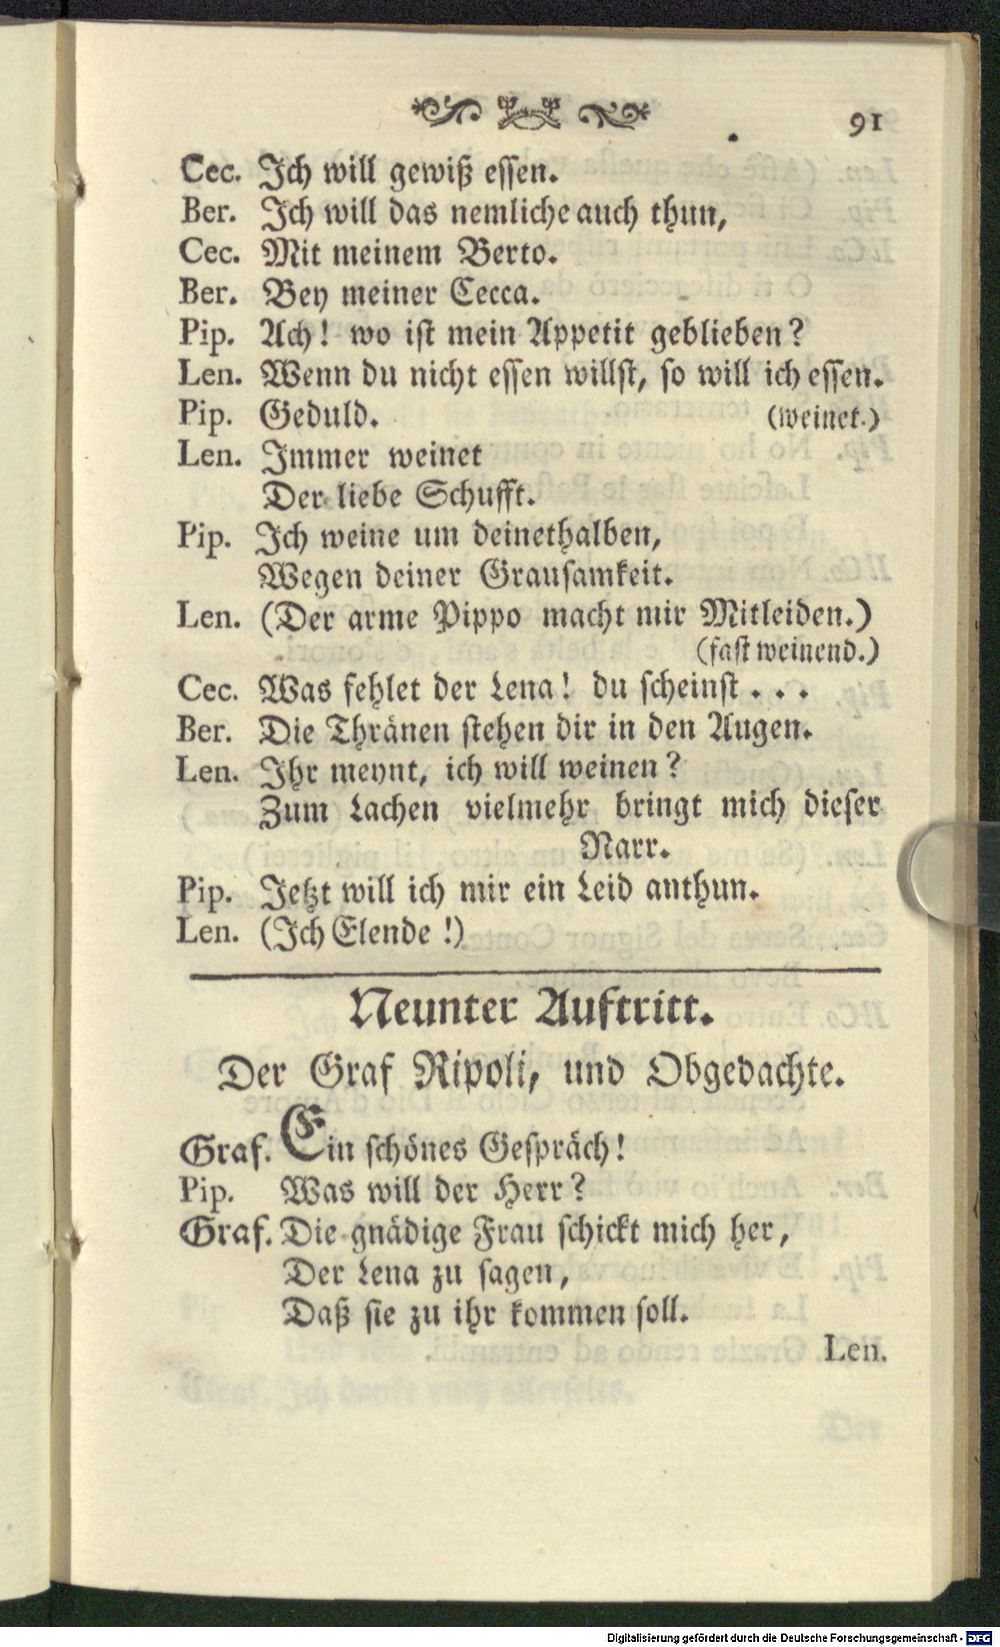 91
Cec. Ich will gewiß essen.
Ber. Ich will das nemliche auch thun,
Cec. Mit meinem Berto.
Ber. Bey meiner Cecca.
Pip. Ach! wo ist mein Appetit geblieben?
Len. Wenn du nicht essen willst, so will ich essen.
Pip. Geduld. (weinet.)
Len. Immer weinet
Der liebe Schufft.
Pip. Ich weine um deinethalben,
Wegen deiner Grausamkeit.
Len. (Der arme Pippo macht mir Mitleiden.)
(fast weinend.)
Cec. Was fehlet der Lena! du scheinst . . .
Ber. Die Thränen stehen dir in den Augen.
Len. Ihr meynt, ich will weinen?
Zum Lachen vielmehr bringt mich dieser
Narr.
Pip. Jetzt will ich mir ein Leid anthun.
Len. (Ich Elende!)
Neunter Auftritt.
Der Graf Ripoli, und Obgedachte.
Graf. Ein schönes Gespräch!
Pip. Was will der Herr?
Graf. Die gnädige Frau schickt mich her,
Der Lena zu sagen,
Daß sie zu ihr kommen soll.
Len.
Digitalisierung gefördert durch die Deutsche Forschungsgemeinschaft - DFG